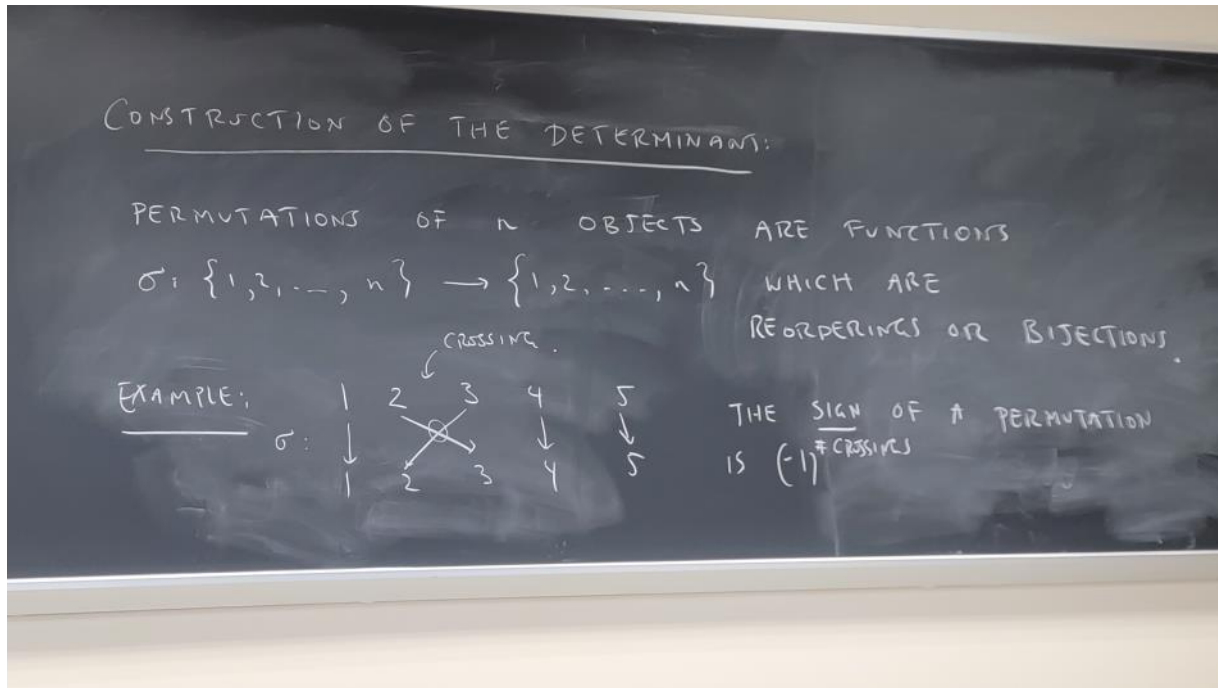 CONSTRUCTION OF THE DETERMINANT:
PERMUTATIONS OF n OBJECTS ARE FUNCTIONS
σ: {1,2,...,n} → {1,2,...,n} WHICH ARE
REORDERINGS OR BIJECTIONS.
CROSSING.
EXAMPLE: 1 2 3 4 5
σ:
1 2 3 4 5
THE SIGN OF A PERMUTATION
IS (-1)^# CROSSINGS